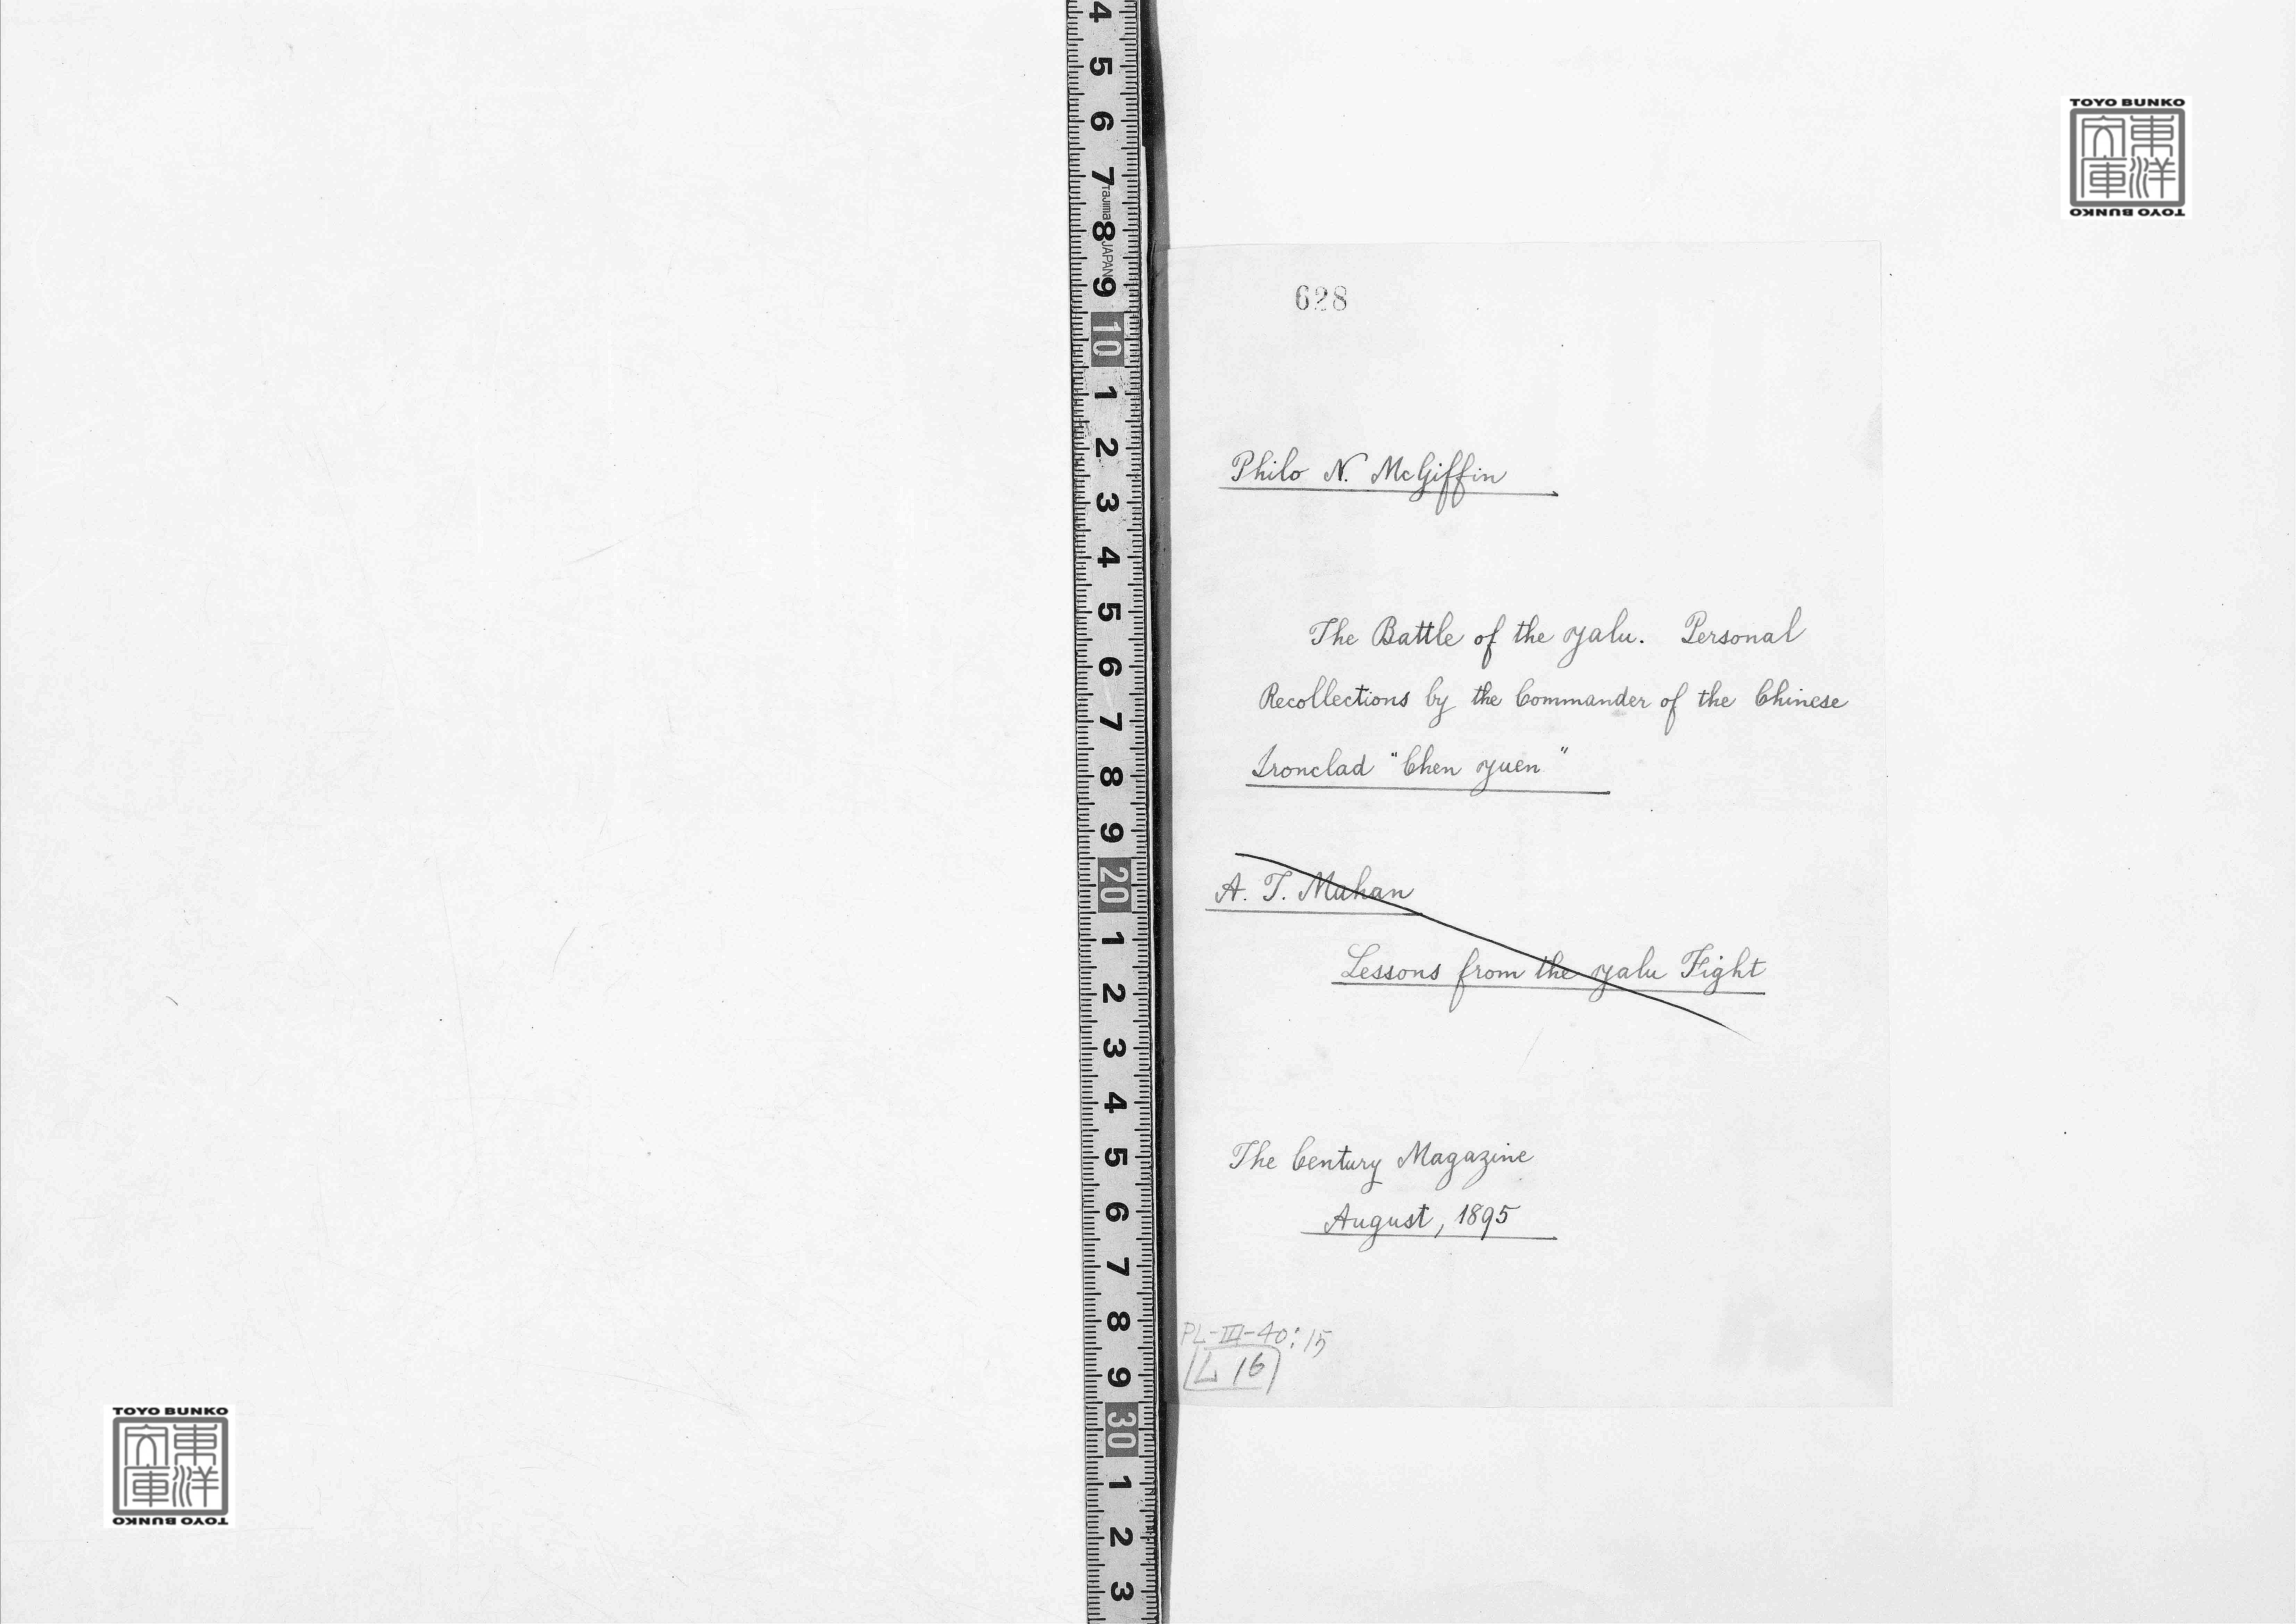 4
5
6
7
Tajima
8
JAPAN
9
10
1
2
3
4
5
6
7
8
9
20
1
2
3
4
5
6
7
8
9
30
1
2
3
TOYO BUNKO
東洋
文庫
TOYO BUNKO
628
Philo N. McGiffin
The Battle of the Yalu. Personal
Recollections by the Commander of the Chinese
Ironclad "Chen Yuen"
A. T. Mahan
Lessons from the Yalu Fight
The Century Magazine
August, 1895
PL-III-40:15
L 16
TOYO BUNKO
東洋
文庫
TOYO BUNKO